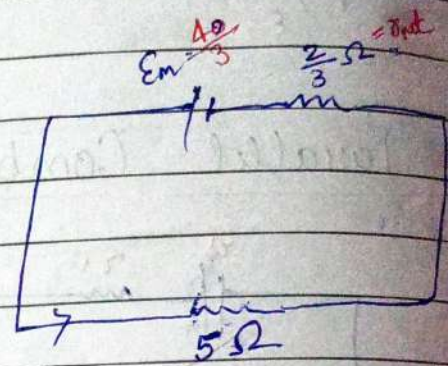 Em = 40/3 2/3 Ω = rnet
5 Ω